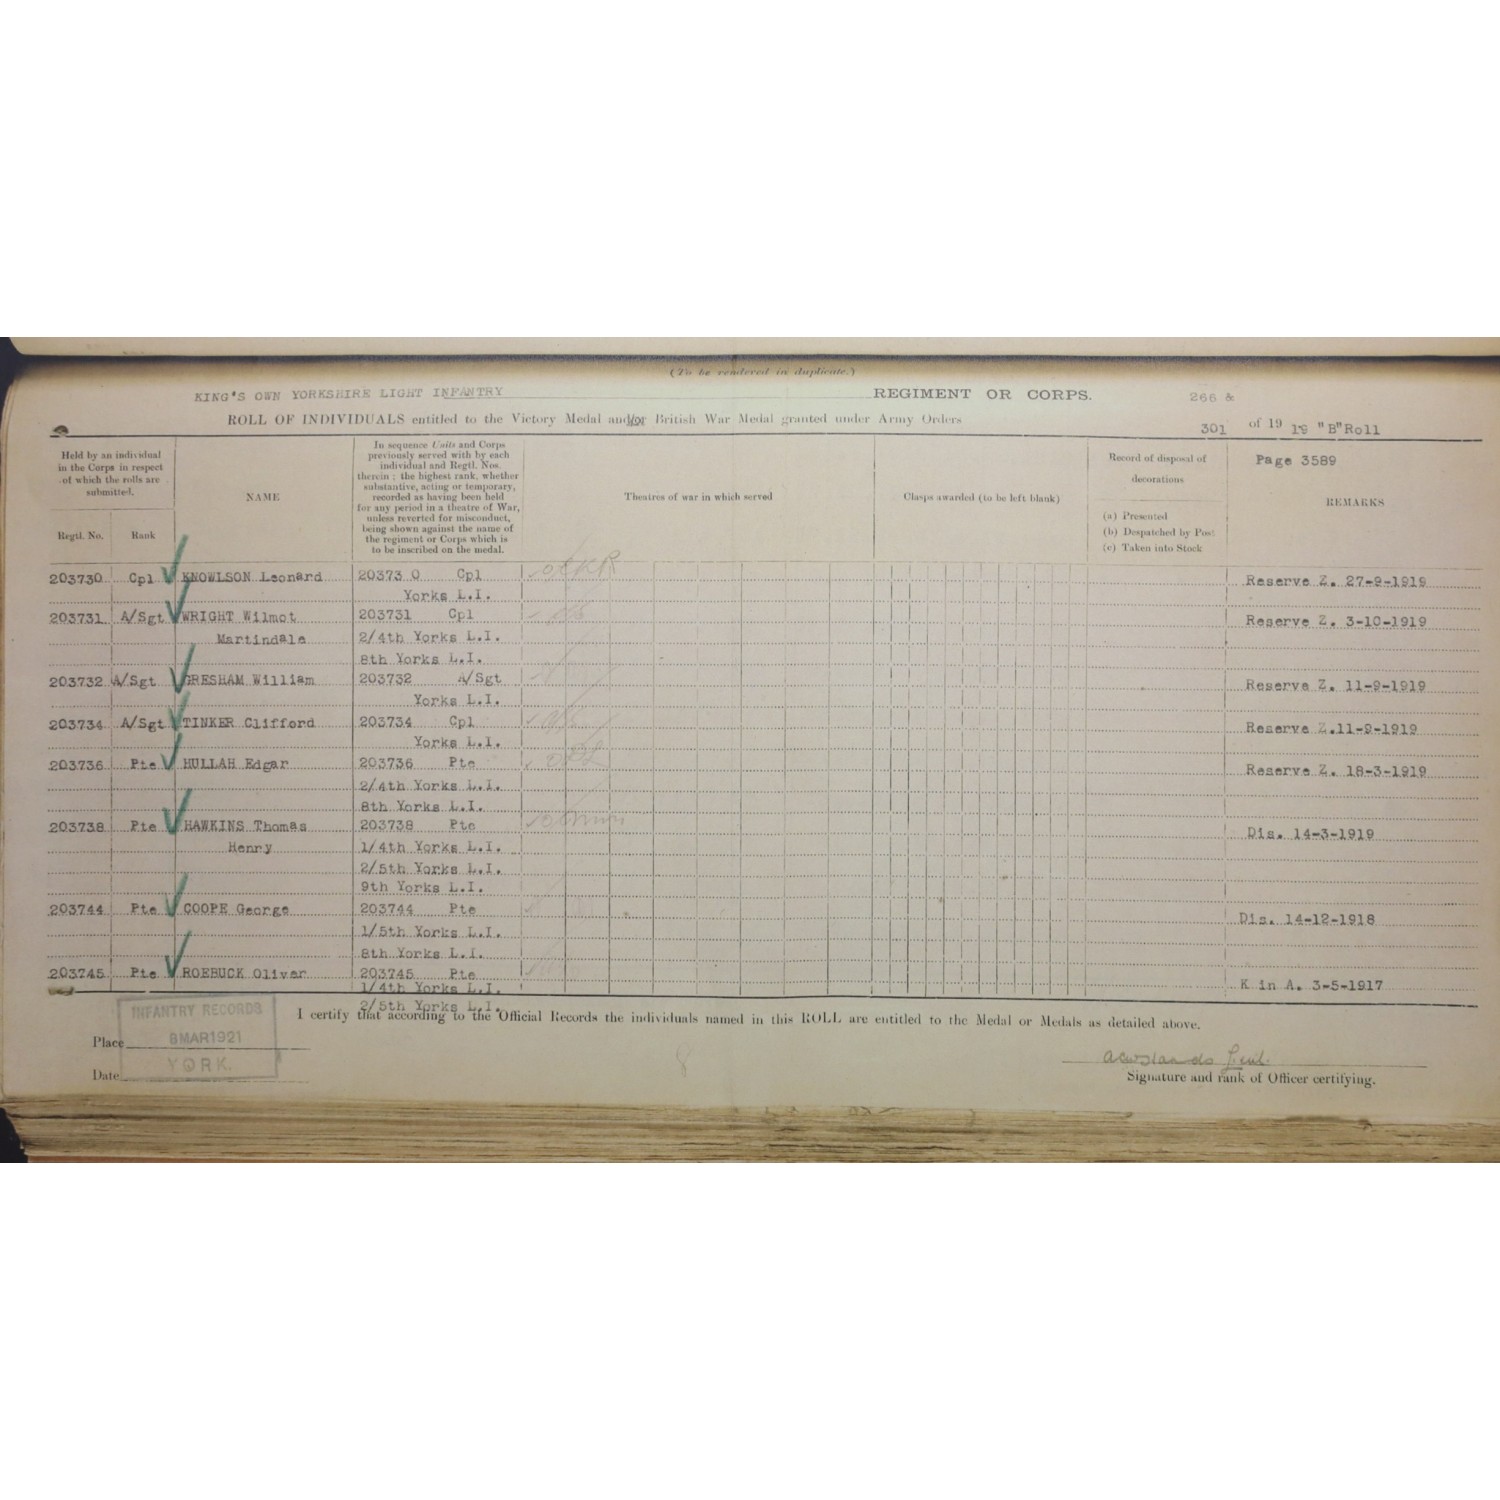 (To be rendered in duplicate.)
KING'S OWN YORKSHIRE LIGHT INFANTRY REGIMENT OR CORPS. 266 &
ROLL OF INDIVIDUALS entitled to the Victory Medal and/or British War Medal granted under Army Orders 301 of 19 19 "B"Roll
Held by an individual
in the Corps in respect
of which the rolls are
submitted.
Regtl. No. Rank
NAME
In sequence Units and Corps
previously served with by each
individual and Regtl. Nos.
therein ; the highest rank, whether
substantive, acting or temporary,
recorded as having been held
for any period in a theatre of War,
unless reverted for misconduct,
being shown against the name of
the regiment or Corps which is
to be inscribed on the medal.
Theatres of war in which served
Clasps awarded (to be left blank)
Record of disposal of
decorations
(a) Presented
(b) Despatched by Post
(c) Taken into Stock
Page 3589
REMARKS
203730 Cpl KNOWLSON Leonard 20373 0 Cpl Reserve Z. 27-9-1919
Yorks L.I.
203731 A/Sgt WRIGHT Wilmot 203731 Cpl Reserve Z. 3-10-1919
Martindale 2/4th Yorks L.I.
8th Yorks L.I.
203732 A/Sgt GRESHAM William 203732 A/Sgt Reserve Z. 11-9-1919
Yorks L.I.
203734 A/Sgt TINKER Clifford 203734 Cpl Reserve Z.11-9-1919
Yorks L.I.
203736 Pte HULLAH Edgar 203736 Pte Reserve Z. 18-3-1919
2/4th Yorks L.I.
8th Yorks L.I.
203738 Pte HAWKINS Thomas 203738 Pte Dis. 14-3-1919
Henry 1/4th Yorks L.I.
2/5th Yorks L.I.
9th Yorks L.I.
203744 Pte COOPE George 203744 Pte Dis. 14-12-1918
1/5th Yorks L.I.
8th Yorks L.I.
203745 Pte ROEBUCK Oliver 203745 Pte K in A. 3-5-1917
1/4th Yorks L.I.
2/5th Yorks L.I.
I certify that according to the Official Records the individuals named in this ROLL are entitled to the Medal or Medals as detailed above.
INFANTRY RECORDS
8 MAR 1921
YORK.
Place
Date
Signature and rank of Officer certifying.
8